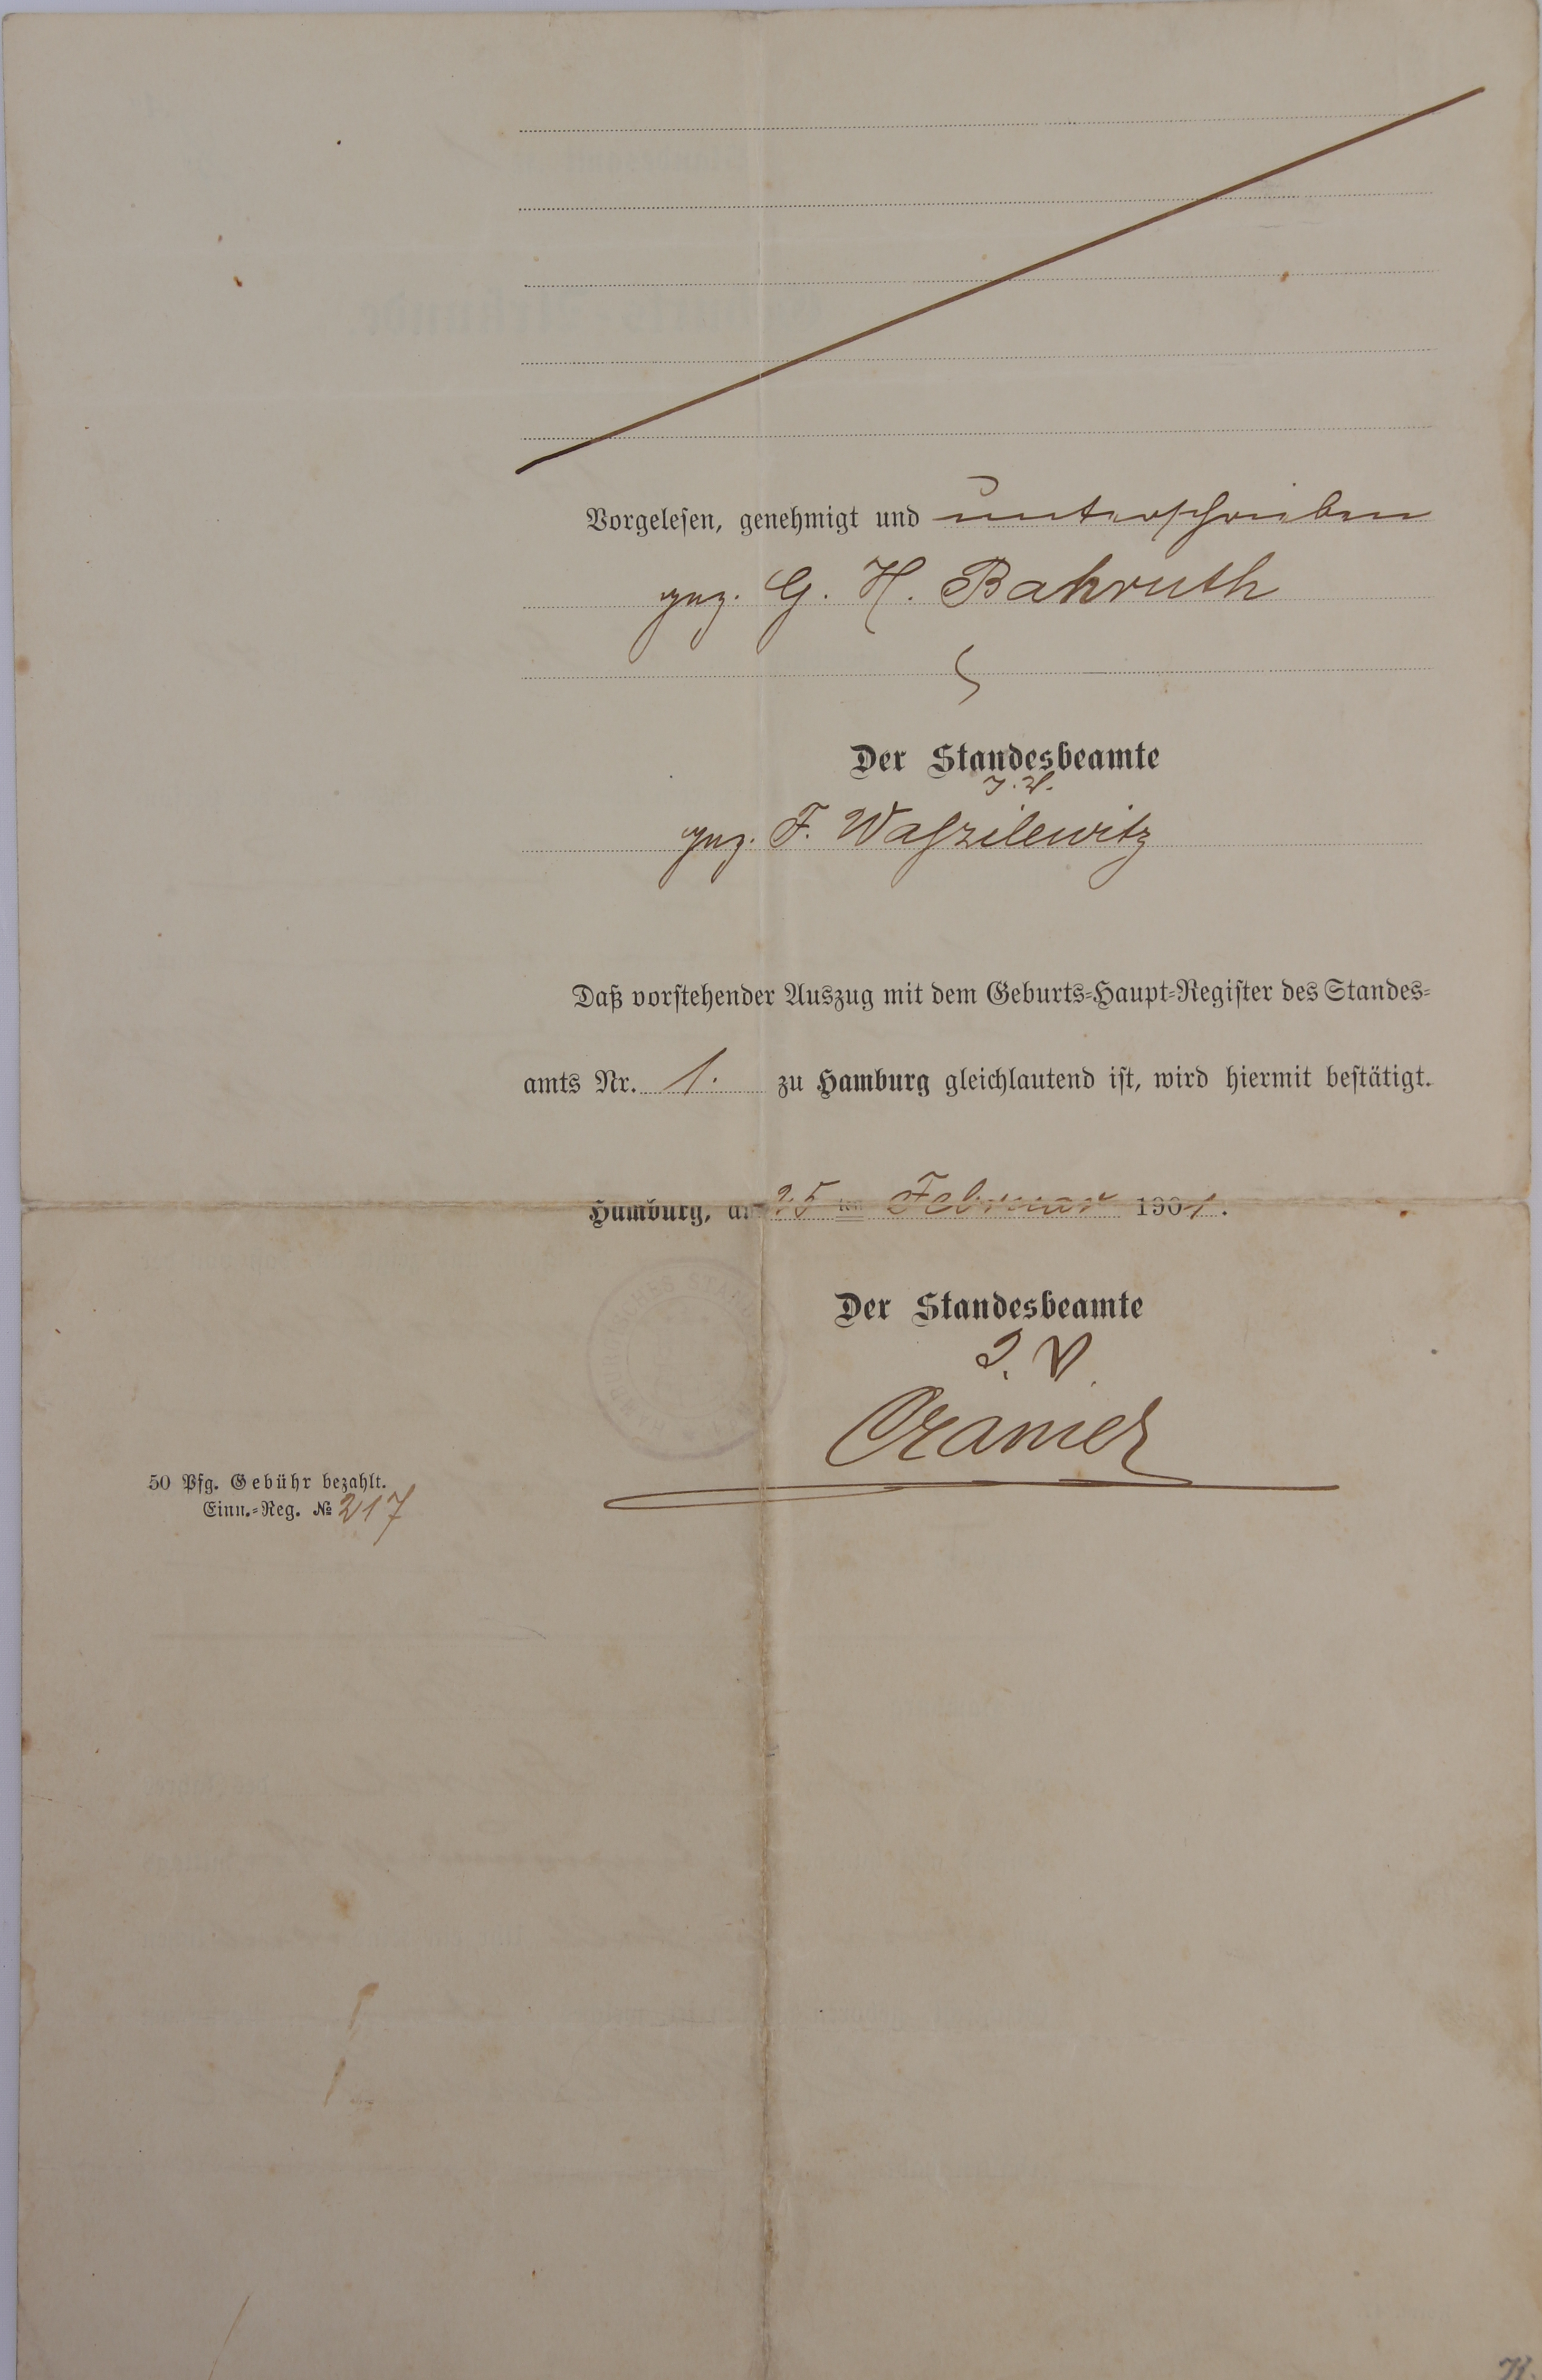 Vorgelesen, genehmigt und unterschrieben
gez. G. H. Bahruth
Der Standesbeamte
J. V.
gez. F. Waszilewitz
Daß vorstehender Auszug mit dem Geburts-Haupt-Register des Standes-
amts Nr. 1. zu Hamburg gleichlautend ist, wird hiermit bestätigt.
Hamburg, am 25 ten Februar 1901.
HAMBURGISCHES
Der Standesbeamte
J. V.
Cramer
50 Pfg. Gebühr bezahlt.
Einn.-Reg. № 217